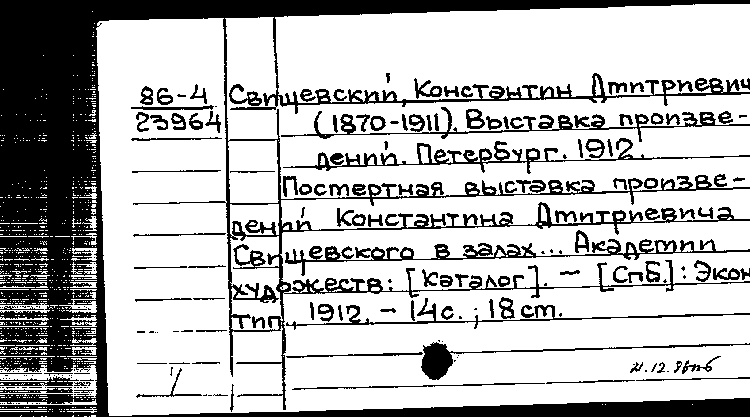 86-4
23964
Свищевский, Константин Дмитриевич
(1870-1911). Выставка произве-
дений. Петербург. 1912.
Посмертная выставка произве-
дений Константина Дмитриевича
Свищевского в залах... Академии
художеств: [Каталог]. — [СПб.]: Экон
тип., 1912. – 14 с. ; 18 см.